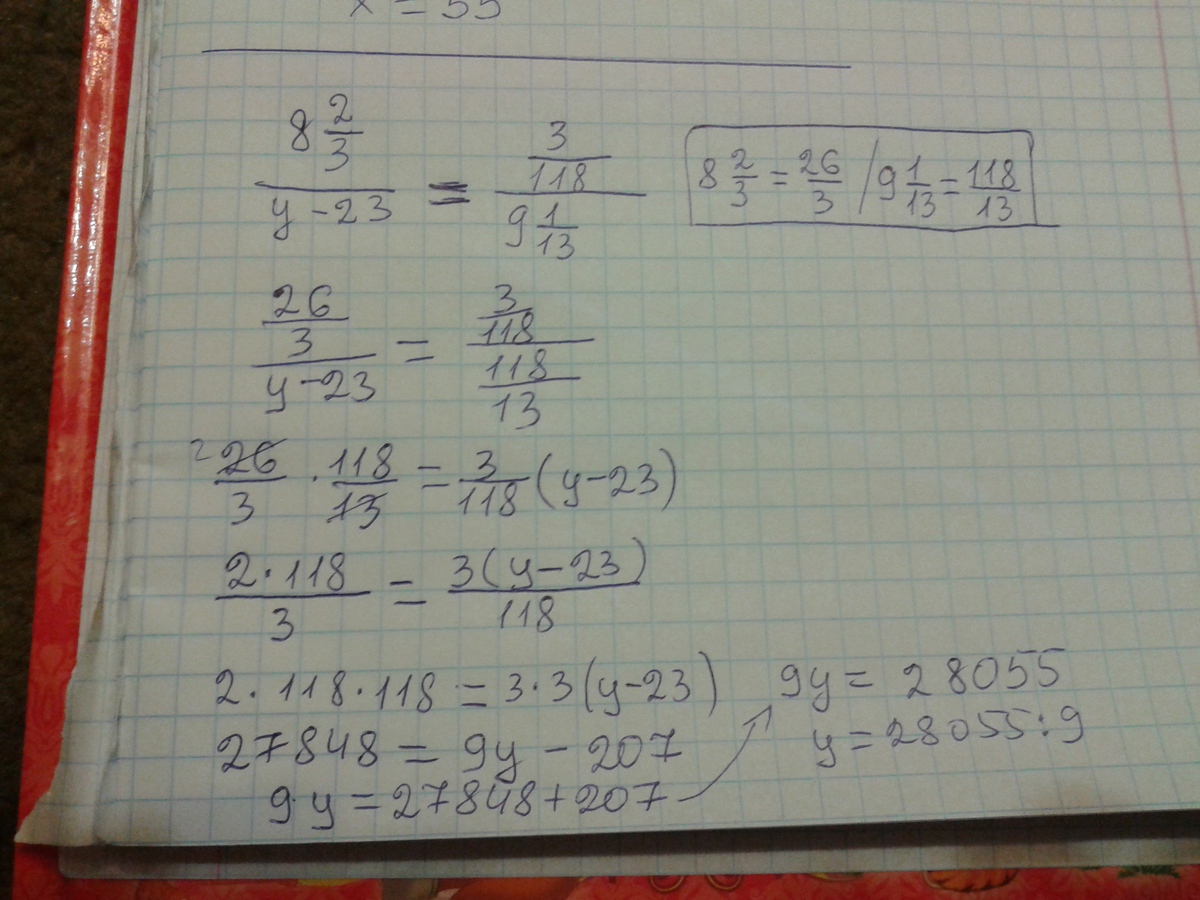 x = 55
8 2/3 / (y - 23) = (3/118) / (9 1/13)
8 2/3 = 26/3 / 9 1/13 = 118/13
(26/3) / (y - 23) = (3/118) / (118/13)
2 26/3 · 118/13 = 3/118 (y - 23)
2 · 118 / 3 = 3(y - 23) / 118
2 · 118 · 118 = 3 · 3 (y - 23)
27848 = 9y - 207
9y = 27848 + 207
9y = 28055
y = 28055 : 9